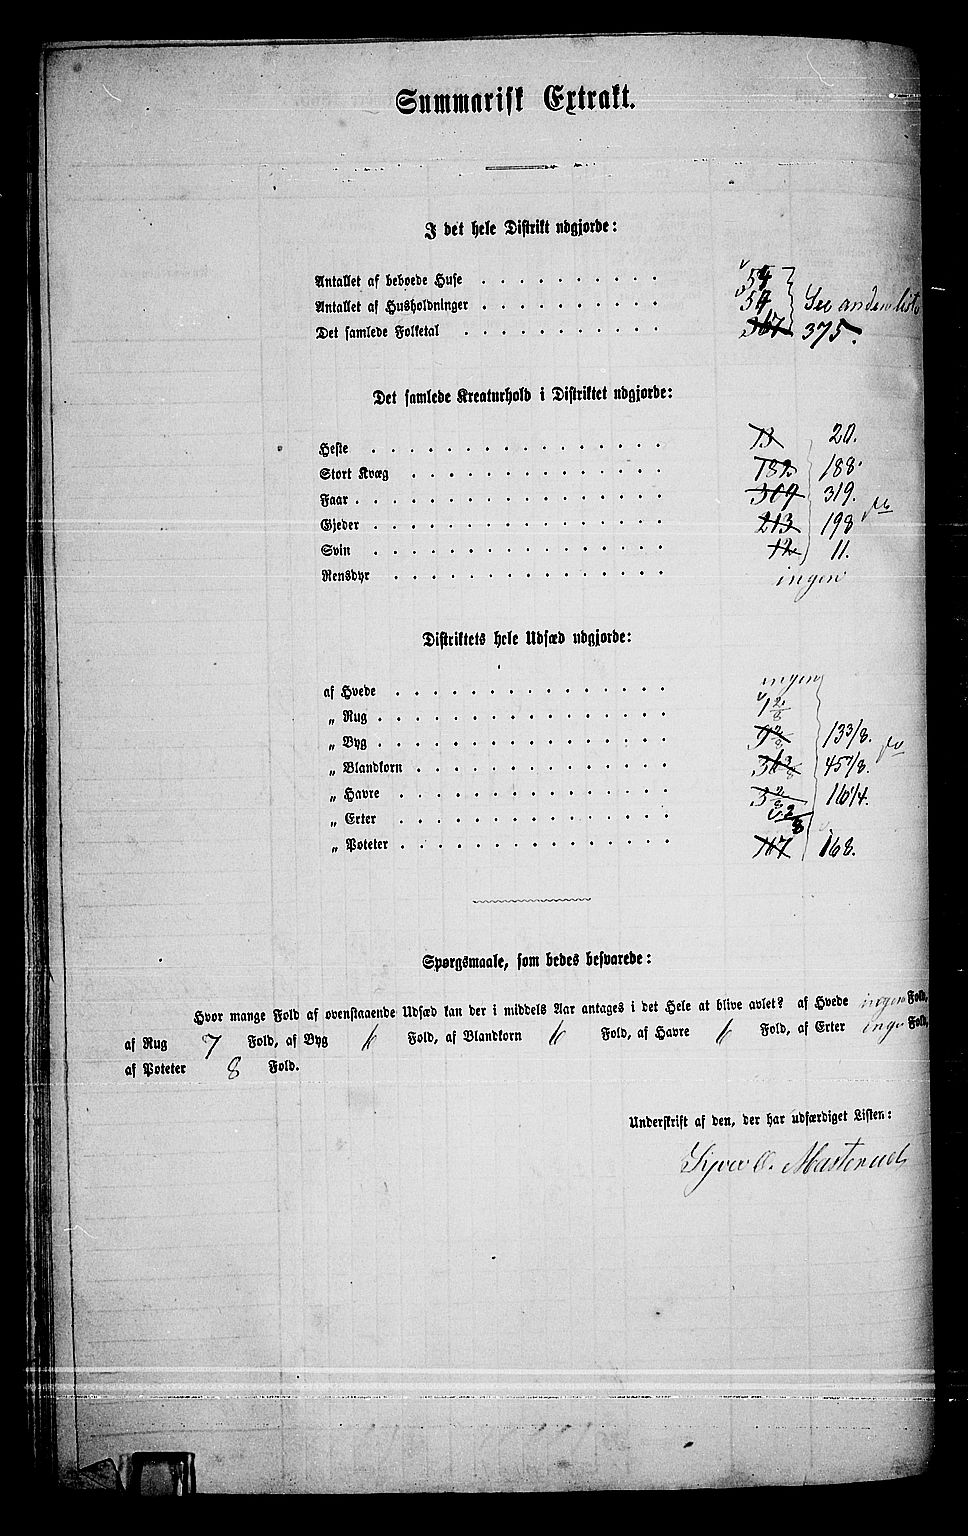 Summarisk Extrakt.
I det hele Distrikt udgjorde:
Antallet af beboede Huse 54
Antallet af Husholdninger 54 See anden liste
Det samlede Folketal 367 375.
Det samlede Kreaturhold i Distriktet udgjorde:
Heste 13 20.
Stort Kvæg 182 188.
Faar 309 319.
Gjeder 213 198
Svin 12 11.
Rensdyr ingen
Distriktets hele Udsæd udgjorde:
af Hvede ingen
„ Rug 1 2/8
„ Byg 9 2/8 13 3/8.
„ Blandkorn 36 3/8 45 7/8.
„ Havre 3 2/8 16 1/4.
„ Erter 2/8
„ Poteter 167 168.
Spørgsmaale, som bedes besvarede:
Hvor mange Fold af ovenstaaende Udsæd kan der i middels Aar antages i det Hele at blive avlet? af Hvede ingen Fold,
af Rug 7 Fold, af Byg 6 Fold, af Blandkorn 6 Fold, af Havre 6 Fold, af Erter inge Fold,
af Poteter 8 Fold.
Underskrift af den, der har udfærdiget Listen:
Syver O. Masterud